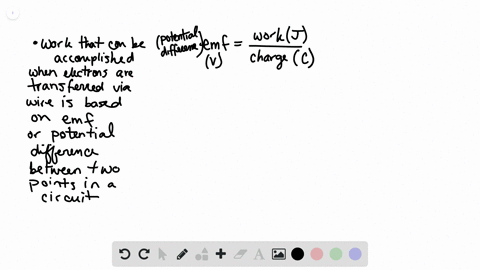 • Work that can be
accomplished
when electrons are
transferred via
wire is based
on emf
or potential
difference
between two
points in a
circuit
(potential
difference) emf = work (J)
(V) charge (C)
A